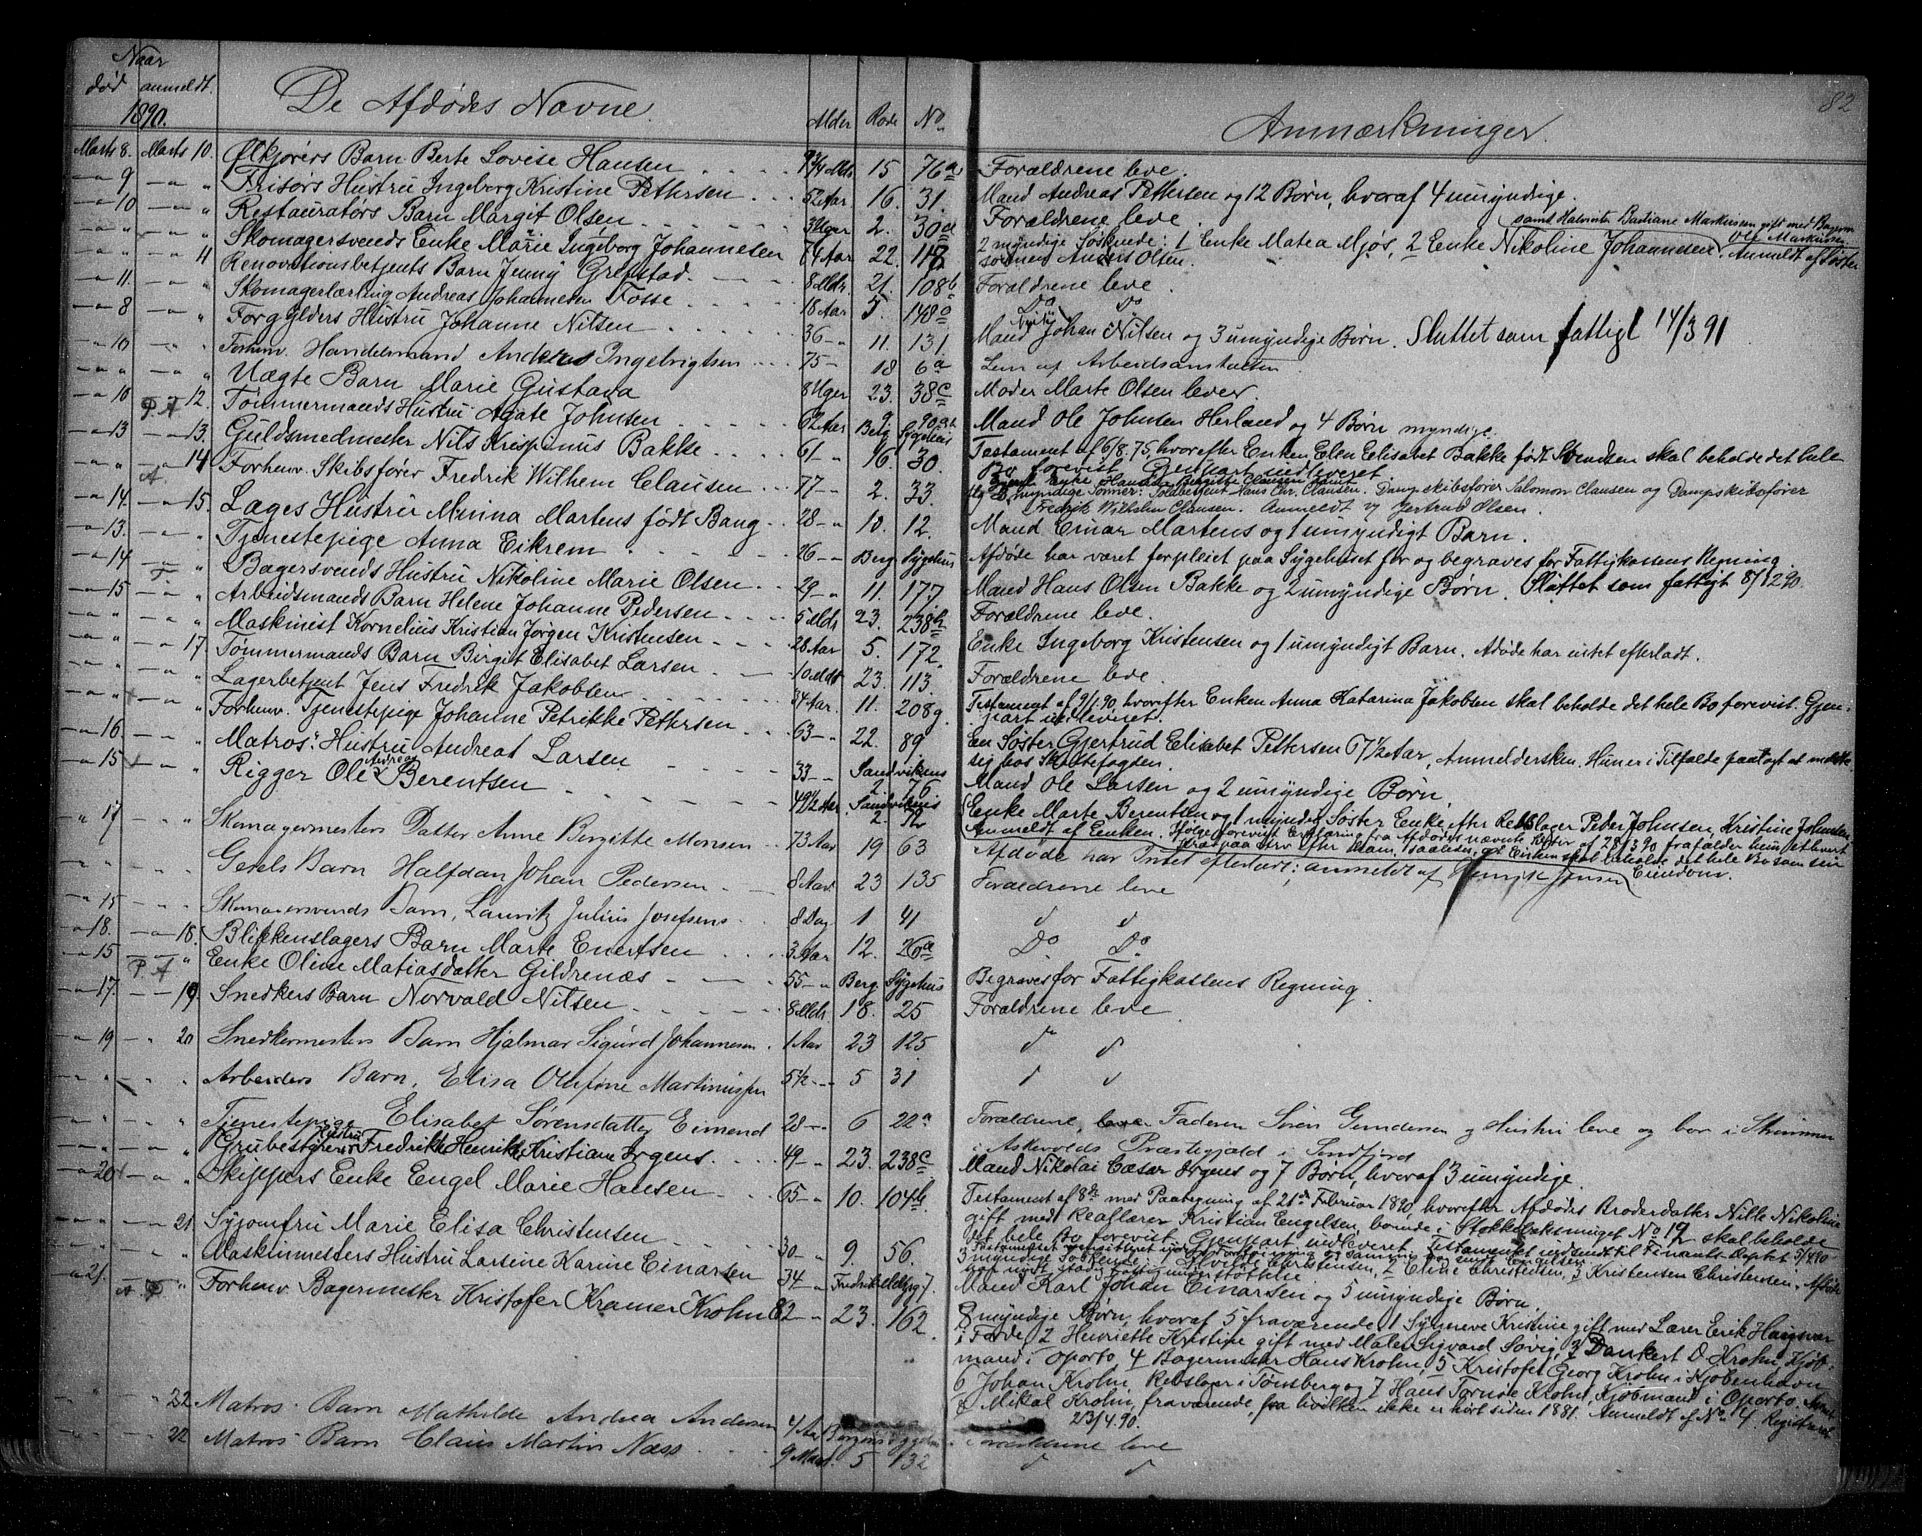 Naar
død anmeldt.
1890.
De Afdødes Navne.
Alder Rode No
Anmærkninger.
82
Marts 8. Marts 10. Ølkjørers Barn Berte Lovise Hansen 9 3/4 Mdr 15 76a Forældrene leve.
" 9 " " Frisørs Hustru Ingeborg Kristine Pettersen 52 Aar 16. 31. Mand Andreas Pettersen og 12 Børn, hvoraf 4 umyndige.
" 10 " " Restauratørs Barn Margit Olsen 3 Uger 2. 30d Forældrene leve.
samt Halvsøster Bastiane Markussen gift med Bagerm Ole Markussen
" " " " Skomagersvends Enke Marie Ingeborg Johannesen 74 Aar 22. 118 2 myndige Søskende: 1 Enke Matea Mjøs, 2 Enke Nikoline Johannesen. Anmeldt af Søster
sønnen Anders Olsen.
" " " 11 Renovationsbetjents Barn Jenny Grefstad 8 Mdr. 21. 108b Forældrene leve.
" 11. " " Skomagerlærling Andreas Johannesen Fosse 18 Aar 5. 148a Do Do
" 8 " " Forgylders Hustru Johanne Nilsen 36 " 11. 131. Mand Johan Nilsen og 3 umyndige Børn. Sluttet som fattigt 14/3 91
" 10 " " Forhenv. Handelsmand Anders Ingebrigtsen 75 " 18 6a Lem af Arbeidsanstalten
" " " " Uægte Barn Marie Gustava 8 Uger 23. 38c Moder Marte Olsen lever.
" 10 P.A. 12. Tømmermands Hustru Agate Johnsen 62 Aar 9 90 Mand Ole Johnsen Herland og 4 Børn myndige.
" 13 " 13. Guldsmedmester Nils Krispinus Bakke 61 " 16. 30. Testament af 6/8.75, hvorefter Enken Elen Elisabet Bakke født Svendsen skal beholde det hele
Bo forevist. Gjenpart udleveret
" " " 14 Forhenv. Skibsfører Fredrik Wilhem Clausen 77 " 2. 33. myndige Sønner: Toldbetjent Hans Chr. Clausen. Dampskibsfører Salomon Clausen og Dampskibsfører
Fredrik Wilhelm Clausen. Anmeldt af Jertrud Olsen.
" 14. " 15. Læges Hustru Minna Martens født Bang 28 " 10. 12. Mand Einar Martens og 1 umyndigt Barn.
" 13. " " Tjenestepige Anna Eikrem 26 " Berg. Sygehus Afdøde har været forpleiet paa Sygehuset før og begraves for Fattigkassens Regning.
" 14 F. " Bagersvends Hustru Nikoline Marie Olsen 29 " 11. 177 Mand Hans Olsen Bakke og 2 umyndige Børn. Sluttet som fattigt 8/12 90.
" 15 " " Arbeidsmands Barn Helene Johanne Pedersen 5 Mdr. 23. 238h Forældrene leve.
" " " " Maskinist Kornelius Kristian Jørgen Kristensen 28 Aar 5. 172. Enke Ingeborg Kristensen og 1 umyndigt Barn. Afdøde har intet efterladt.
" " " 17. Tømmermands Barn Birgit Elisabet Larsen 10 Mdr 23. 113. Forældrene leve.
" " " " Lagerbetjent Jens Fredrik Jakobsen 34 Aar. 11. 208g. Testament af 9/1.90, hvorefter Enken Anna Katarina Jakobsen skal beholde det hele Bo forevist. Gjen-
part udleveret.
" " " " Forhenv. Tjenestepige Johanne Petrikke Pettersen 63 " 22. 89. En Søster Gjertrud Elisabet Pettersen 67 1/2 Aar, Anmeldersken. Hun er i Tilfælde paalagt at melde
sig hos Skiftefogden.
" 16 " " Matros' Hustru Andrea Larsen 33 " Sandvikens 2. 76 Mand Ole Larsen og 2 umyndige Børn.
" 15 " " Rigger Ole Andreas Berentsen 49 1/2 Aar. Sandvikens 2. 12 Enke Marte Berentsen og 1 myndig Søster Enke efter Rebslager Peder Johnsen, Kristine Johnsen.
Anmeldt af Enken. Ifølge forevist Erklæring fra Afdødes nævnte Søster af 28/3 90 frafalder hun ethvert
Krav paa Arv efter ham, saaledes at Enken skal beholde det hele Bo som sin Eiendom.
" 17 " " Skomagermesters Datter Anne Birgitte Monsen 73 Aar 19 63 Afdøde har Intet efterladt; anmeldt af Henrik Jensen
" " " " Gerels Barn Halfdan Johan Pedersen 8 Aar 23 135 Forældrene leve
" 15 " " Skomagersvends Barn, Lauritz Julius Josefsens 8 Dag 1 41 d d
" 18. " 18. Blikkenslagers Barn Marte Evertsen 3 Aar 12. 26a Do Do
" 15 P.A. " Enke Oline Matiasdatter Gildrenæs 55 " Berg. Sygehus Begraves for Fattigkassens Regning.
" 17. " 19. Snedkers Barn Norvald Nilsen 8 Mdr. 18. 25 Forældrene leve.
" 19 " 20 Snedkermesters Barn Hjalmar Sigurd Johannesen. 1 Aar 23 125 d d
" " " " Arbeiders Barn, Elisa Olufine Martinussen 5 1/2 " 5 31 d d
" " " " Tjenestepige Elisabet Sørensdatter Eimend 28 " 6 22a Forældrene, Faderen Søren Gundersen og Hustru leve og bor i Strømmen
i Askevolds Præstegjæld i Søndfjord
" " " " Grubestyrers Hustru Fredrikke Henrikke Kristiane Irgens. 49 " 23. 238c Mand Nikolai Cæsar Irgens og 7 Børn, hvoraf 3 umyndige.
" 20 " " Skippers Enke Engel Marie Hansen 65 " 10. 104b Testament af 8de med Paategning af 21de Februar 1890, hvorefter Afdødes Broderdatter Nille Nikoline
gift med Reaflærer Kristian Engelsen, boende i Stokkeleksmuget No 19 skal beholde
det hele Bo forevist. Gjenpart udleveret. Testamentet indsendt til Finants Deptet 5/4 90
" " " 21 Syjomfru Marie Elisa Christensen 30 " 9. 56. 3 myndige Søskende: 1 Christensen, 2 Eline Christensen, 3 Kristensen Christensen. Afdøde
har nydt Fattigunderstøttelse
" " " " Maskinmelders Hustru Larsine Karine Einarsen 34 " Fredrik Meltzg 7. Mand Karl Johan Einarsen og 5 umyndige Børn.
" 21. A. P. " Forhenv. Bagermester Kristofer Kramer Krohn 82 " 23. 162. 8 myndige Børn, hvoraf 5 fraværende. 1 Kristine gift med Lærer Erik
i Førde, 2 Henriette Kristine gift med Maler Sigvard Søvig, 3 Dankert D. Krohn, Kjøb-
mand i Oporto 4 Bagermester Hans Krohn, 5 Kristofer Georg Krohn i Kjøbenhavn
6 Johan Krohn, Rebslager i Tønsberg og 7 Hans Tornøe Krohn, Kjøbmand i Oporto.
8 Mikal Krohn, fraværende, fra hvilken ikke er hørt siden 1881. Anmeldt af No 4. Registreret
23/4.90.
" " " 22 Matros' Barn Mathilde Andrea Andersen 4 Aar Bergens Sygehus Forældrene leve
" " " 22 Matros' Barn Claus Martin Næss 9 Maad. 5 132 d d